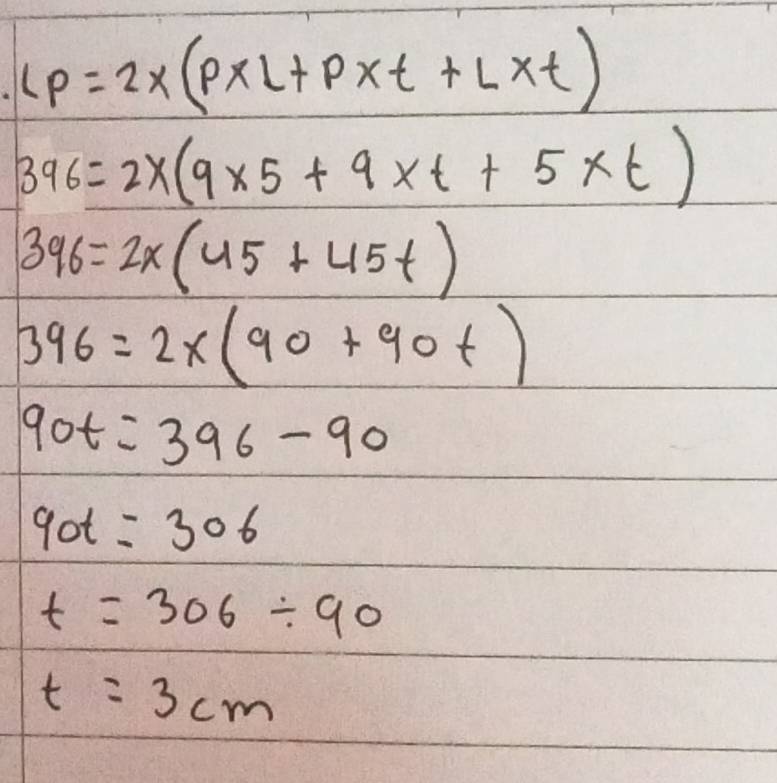 Lp = 2 × (p × L + p × t + L × t)
396 = 2 × (9 × 5 + 9 × t + 5 × t)
396 = 2 × (45 + 45t)
396 = 2 × (90 + 90t)
90t = 396 - 90
90t = 306
t = 306 ÷ 90
t = 3 cm